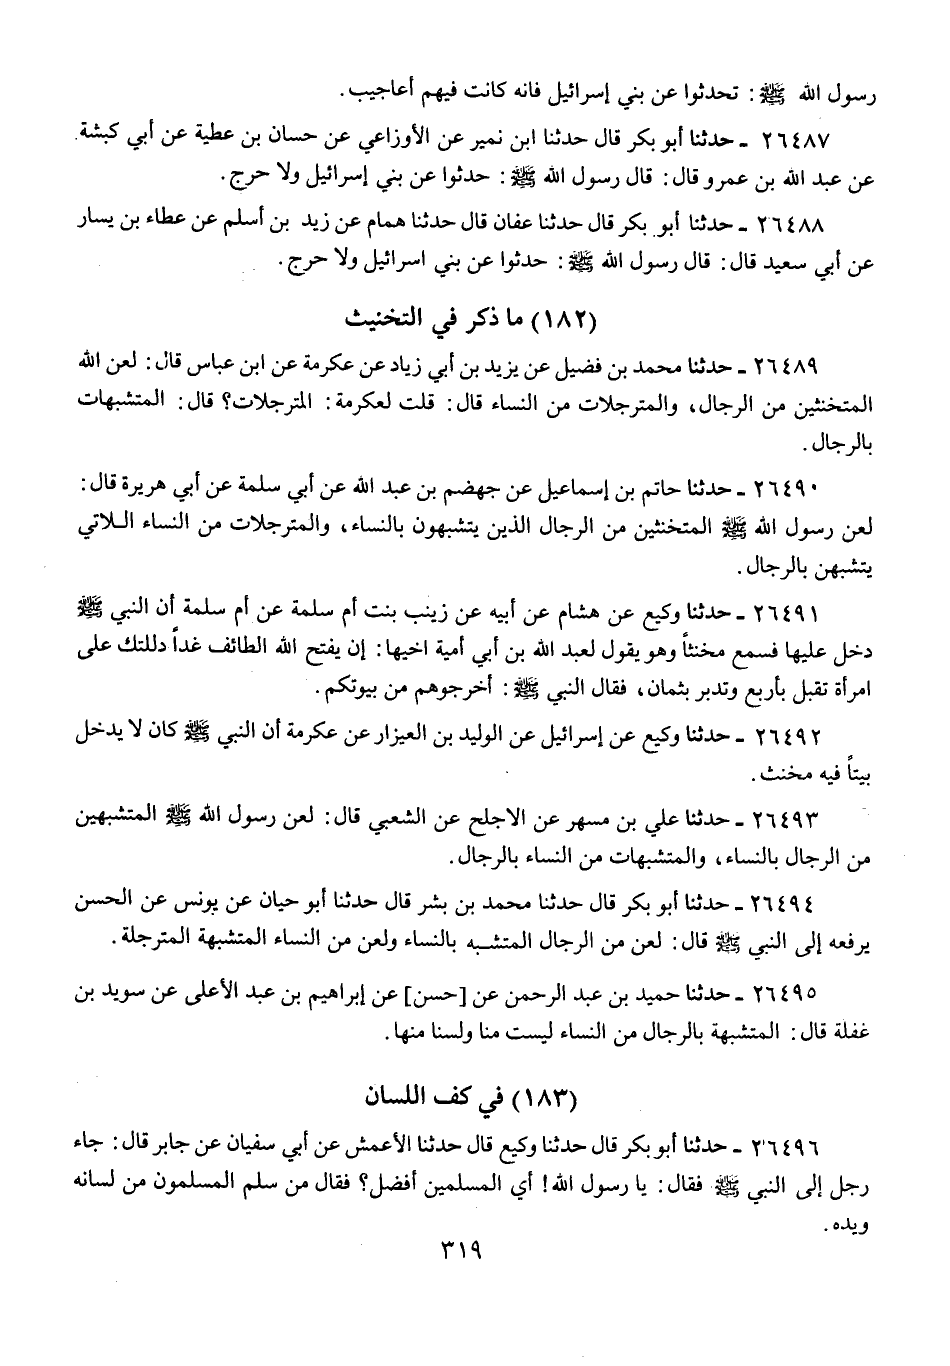 رسول الله ﷺ : تحدثوا عن بني إسرائيل فانه كانت فيهم أعاجيب.
٢٦٤٨٧ ـ حدثنا أبو بكر قال حدثنا ابن نمير عن الأوزاعي عن حسان بن عطية عن أبي كبشة
عن عبد الله بن عمرو قال: قال رسول الله ﷺ : حدثوا عن بني إسرائيل ولا حرج.
٢٦٤٨٨ ـ حدثنا أبو بكر قال حدثنا عفان قال حدثنا همام عن زيد بن أسلم عن عطاء بن يسار
عن أبي سعيد قال: قال رسول الله ﷺ : حدثوا عن بني اسرائيل ولا حرج.
(١٨٢) ما ذكر في التخنيث
٢٦٤٨٩ ـ حدثنا محمد بن فضيل عن يزيد بن أبي زياد عن عكرمة عن ابن عباس قال: لعن الله
المتخنثين من الرجال، والمترجلات من النساء قال: قلت لعكرمة: المترجلات؟ قال: المتشبهات
بالرجال.
٢٦٤٩٠ ـ حدثنا حاتم بن إسماعيل عن جهضم بن عبد الله عن أبي سلمة عن أبي هريرة قال:
لعن رسول الله ﷺ المتخنثين من الرجال الذين يتشبهون بالنساء، والمترجلات من النساء اللاتي
يتشبهن بالرجال.
٢٦٤٩١ ـ حدثنا وكيع عن هشام عن أبيه عن زينب بنت أم سلمة عن أم سلمة أن النبي ﷺ
دخل عليها فسمع مخنثاً وهو يقول لعبد الله بن أبي أمية اخيها: إن يفتح الله الطائف غداً دللتك على
امرأة تقبل بأربع وتدبر بثمان، فقال النبي ﷺ : أخرجوهم من بيوتكم.
٢٦٤٩٢ ـ حدثنا وكيع عن إسرائيل عن الوليد بن العيزار عن عكرمة أن النبي ﷺ كان لا يدخل
بيتاً فيه مخنث.
٢٦٤٩٣ ـ حدثنا علي بن مسهر عن الاجلح عن الشعبي قال: لعن رسول الله ﷺ المتشبهين
من الرجال بالنساء، والمتشبهات من النساء بالرجال.
٢٦٤٩٤ ـ حدثنا أبو بكر قال حدثنا محمد بن بشر قال حدثنا أبو حيان عن يونس عن الحسن
يرفعه إلى النبي ﷺ قال: لعن من الرجال المتشبه بالنساء ولعن من النساء المتشبهة المترجلة.
٢٦٤٩٥ ـ حدثنا حميد بن عبد الرحمن عن [حسن] عن إبراهيم بن عبد الأعلى عن سويد بن
غفلة قال: المتشبهة بالرجال من النساء ليست منا ولسنا منها.
(١٨٣) في كف اللسان
٢٦٤٩٦ ـ حدثنا أبو بكر قال حدثنا وكيع قال حدثنا الأعمش عن أبي سفيان عن جابر قال: جاء
رجل إلى النبي ﷺ فقال: يا رسول الله! أي المسلمين أفضل؟ فقال من سلم المسلمون من لسانه
ويده.
٣١٩